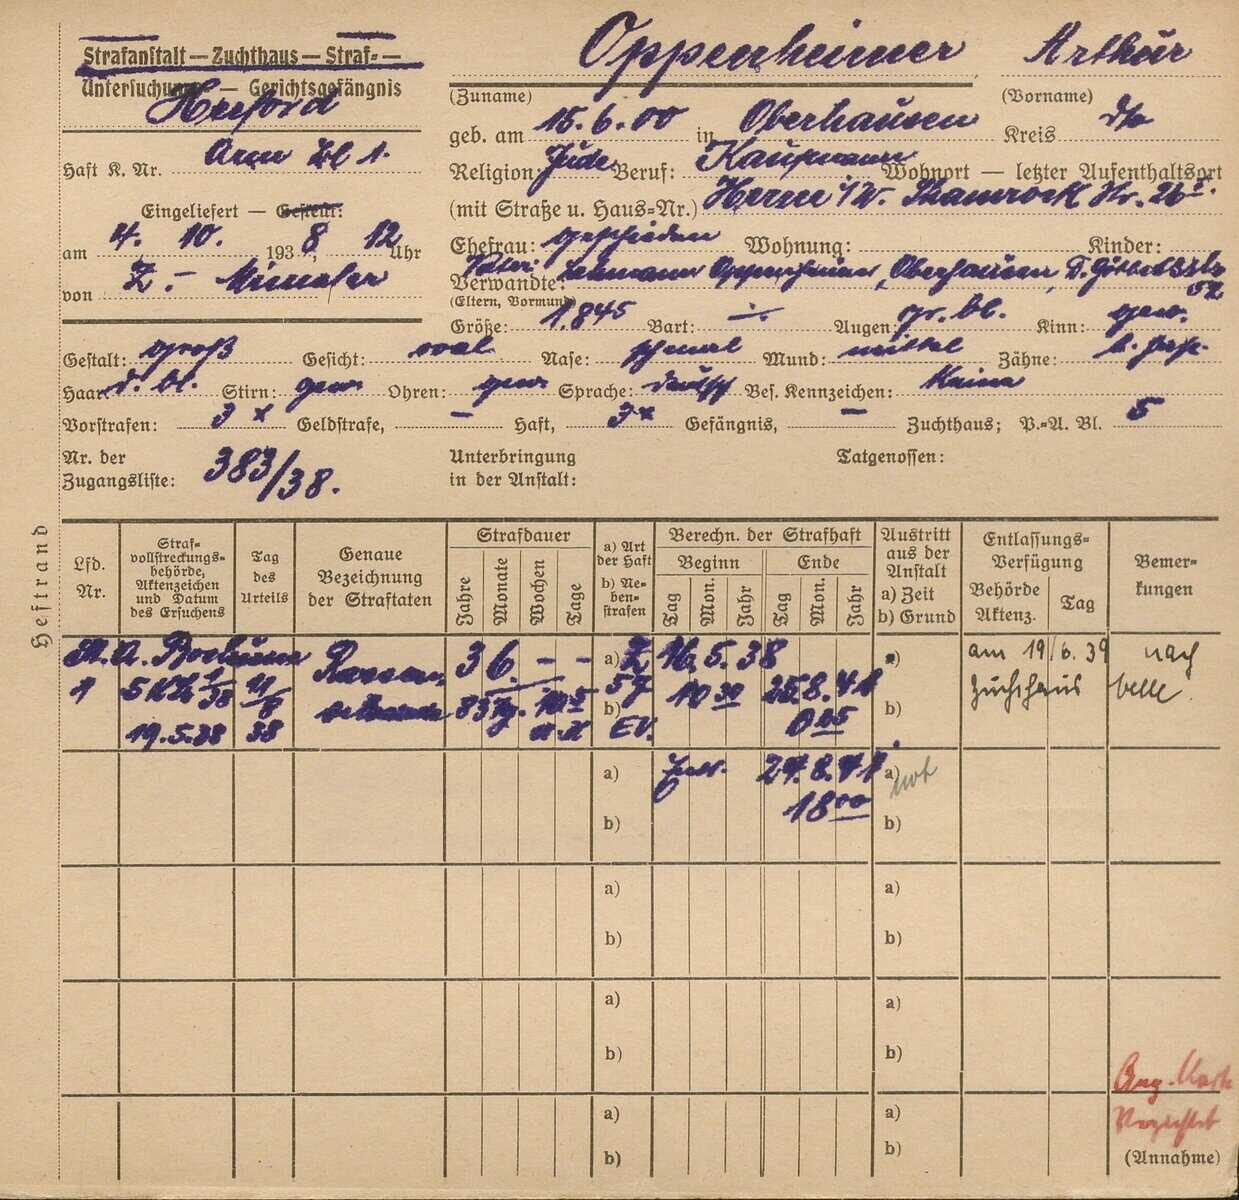 Strafanstalt — Zuchthaus — Straf= —
Untersuchungs — Gerichtsgefängnis
Herford
Haft K. Nr. Arm Zl 1.
Eingeliefert — Gestellt:
am 4. 10. 193 8, 12 Uhr
von Z. - Münster
Oppenheimer Arthur
(Zuname) (Vorname)
geb. am 15.6.00 in Oberhausen Kreis
Religion: Jude Beruf: Kaufmann Wohnort — letzter Aufenthaltsort
(mit Straße u. Haus=Nr.) Herne i/W. Shamrock Str. 26
Ehefrau: geschieden Wohnung: Kinder:
Vater:
Verwandte: Oppenheimer, Oberhausen,
(Eltern, Vormund)
Größe: 1.845 Bart: -.- Augen: gr. bl. Kinn: gew.
Gestalt: groß Gesicht: oval Nase: schmal Mund: mittel Zähne:
Haar: d. bl. Stirn: gew Ohren: gew Sprache: deutsch Bes. Kennzeichen: Keine
Vorstrafen: 3 x Geldstrafe, — Haft, 3x Gefängnis, — Zuchthaus; P.=A. Bl. 5
Nr. der
Zugangsliste: 383/38.
Unterbringung
in der Anstalt:
Tatgenossen:
Heftrand
Lfd.
Nr.
Straf=
vollstreckungs=
behörde,
Aktenzeichen
und Datum
des Ersuchens
Tag
des
Urteils
Genaue
Bezeichnung
der Straftaten
Strafdauer
Jahre
Monate
Wochen
Tage
a) Art
der Haft
b) Ne=
ben=
strafen
Berechn. der Strafhaft
Beginn Ende
Tag Mon. Jahr Tag Mon. Jahr
Austritt
aus der
Anstalt
a) Zeit
b) Grund
Entlassungs=
Verfügung
Behörde
Aktenz. Tag
Bemer=
kungen
St. A. Bochum Rassen 3 6. - - a) Z 16. 5. 38 a) am 19/6. 39 nach
1 5 1/38 11/8 5 J 10 30 25. 8. 41 Zuchthaus Celle
19.5.38 38 b) EV. 0 05 b)
a) 24. 8. 41 a)
b) 18 00 b)
a) a)
b) b)
a) a)
b) b)
a) a)
b) b)
Verzichtet
(Annahme)